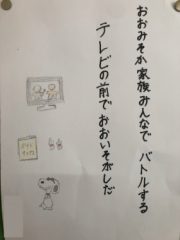 おおみそか家族みんなで バトルする
テレビの前で おおいそがしだ